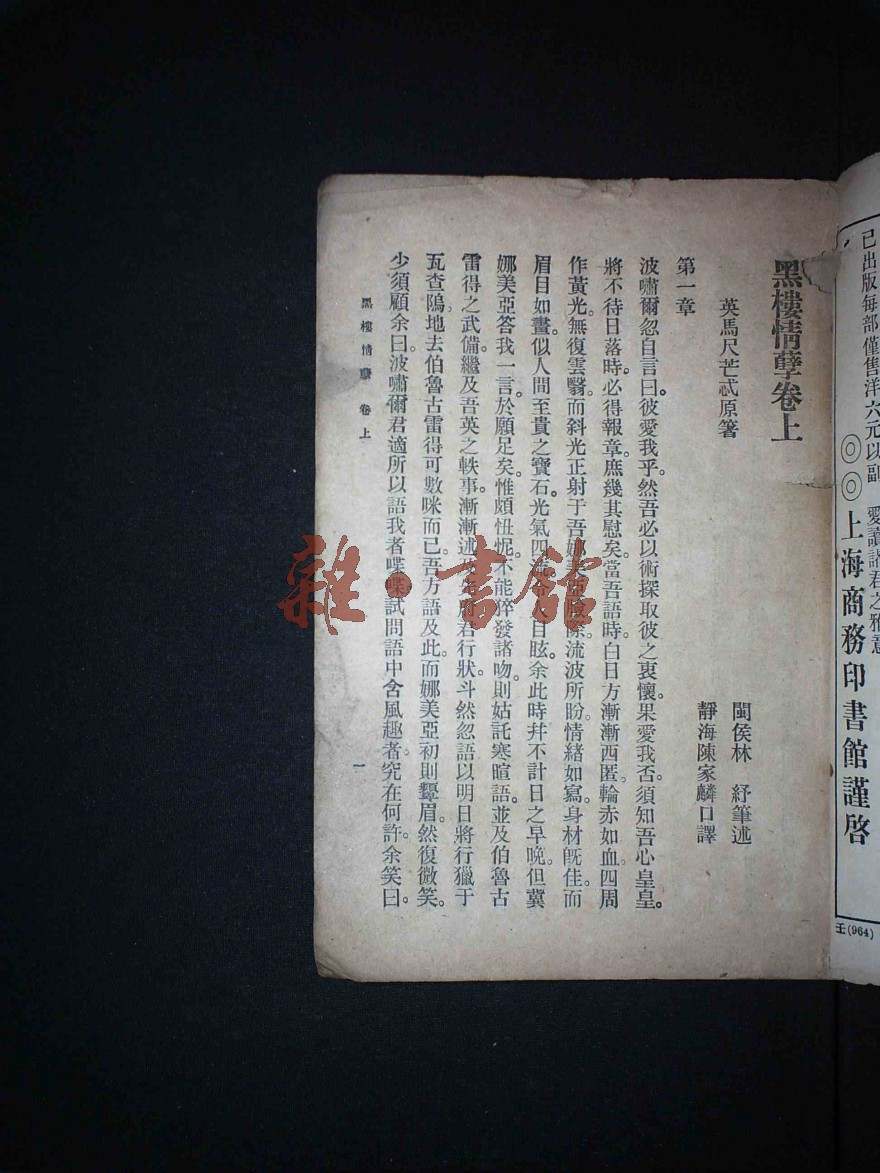 已出版每部僅售洋六元以副 愛讀諸君之雅意
◎◎上海商務印書館謹啓
壬(964)
黑樓情孽卷上
英馬尺芒忒原箸
閩侯林 紓筆述
靜海陳家麟口譯
第一章
波嘯爾忽自言曰。彼愛我乎。然吾必以術探取彼之衷懷。果愛我否。須知吾心皇皇。
將不待日落時。必得報章。庶幾其慰矣。當吾語時。白日方漸漸西匿。輪赤如血。四周
作黃光。無復雲翳。而斜光正射于吾娜美亞臉際。流波所盼。情緒如寫。身材旣佳。而
眉目如畫。似人間至貴之寶石。光氣四 人目眩。余此時幷不計日之早晚。但冀
娜美亞答我一言。於願足矣。惟頗忸怩。不能猝發諸吻。則姑託寒暄語。並及伯魯古
雷得之武備。繼及吾英之軼事。漸漸述 府君行狀。斗然忽語以明日將行獵于
瓦查隖地。去伯魯古雷得可數咪而已。吾方語及此。而娜美亞初則顰眉。然復微笑。
少須顧余曰。波嘯爾君適所以語我者喋喋。試問語中含風趣者。究在何許。余笑曰。
黑樓情孽 卷上
一
雜·書館